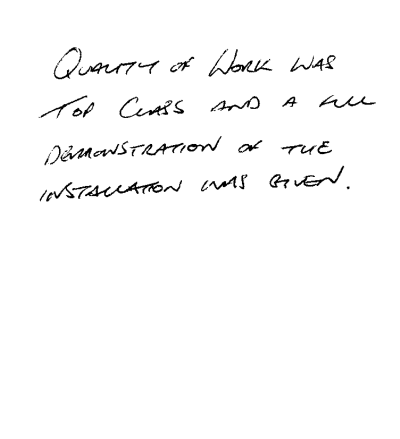 QUALITY OF WORK WAS
TOP CLASS AND A FULL
DEMONSTRATION OF THE
INSTALLATION WAS GIVEN.